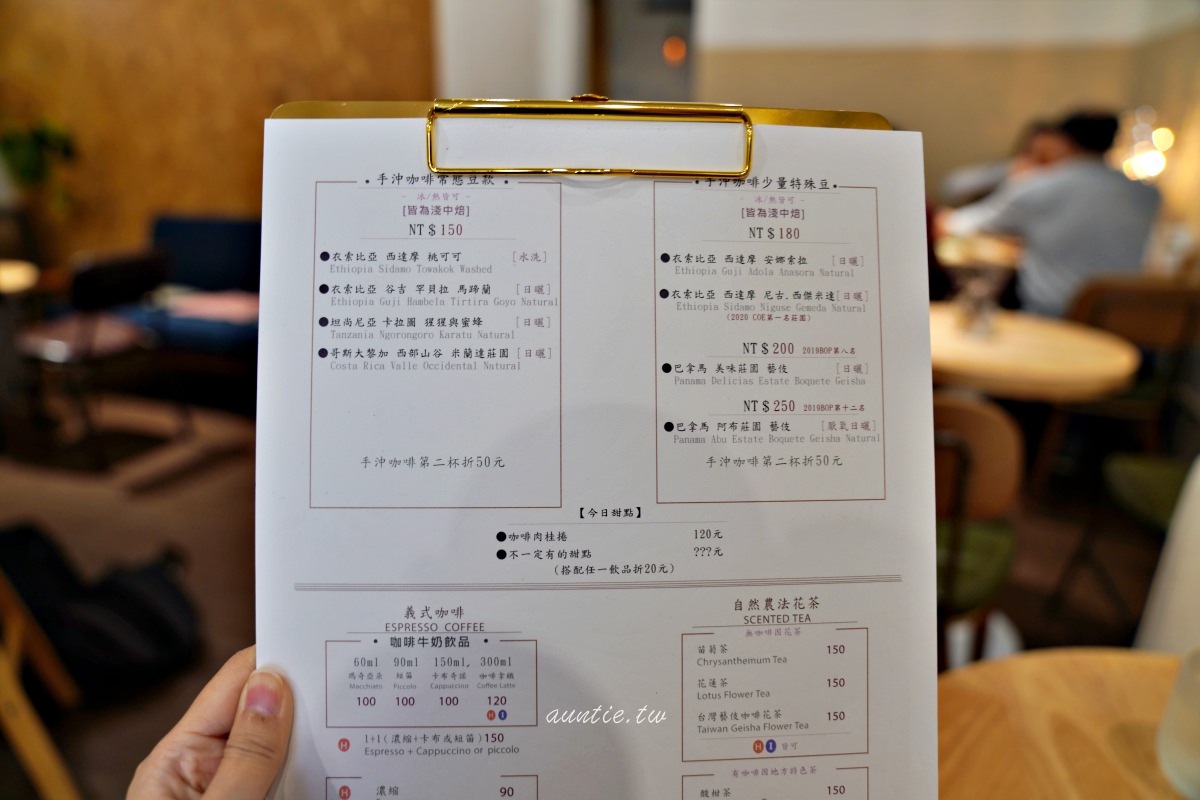 • 手沖咖啡常態豆款 •
- 冰/熱皆可 -
[皆為淺中焙]
NT $ 150
●衣索比亞 西達摩 桃可可 [水洗]
Ethiopia Sidamo Towakok Washed
●衣索比亞 谷吉 罕貝拉 馬蹄蘭 [日曬]
Ethiopia Guji Hambela Tirtira Goyo Natural
●坦尚尼亞 卡拉圖 猩猩與蜜蜂 [日曬]
Tanzania Ngorongoro Karatu Natural
●哥斯大黎加 西部山谷 米蘭達莊園 [日曬]
Costa Rica Valle Occidental Natural
手沖咖啡第二杯折50元
• 手沖咖啡少量特殊豆 •
- 冰/熱皆可 -
[皆為淺中焙]
NT $ 180
●衣索比亞 西達摩 安娜索拉 [日曬]
Ethiopia Guji Adola Anasora Natural
●衣索比亞 西達摩 尼古.西傑米達[日曬]
Ethiopia Sidamo Niguse Gemeda Natural
(2020 COE第一名莊園)
NT $ 200 2019BOP第八名
●巴拿馬 美味莊園 藝伎 [日曬]
Panama Delicias Estate Boquete Geisha
NT $ 250 2019BOP第十二名
●巴拿馬 阿布莊園 藝伎 [厭氧日曬]
Panama Abu Estate Boquete Geisha Natural
手沖咖啡第二杯折50元
【今日甜點】
●咖啡肉桂捲 120元
●不一定有的甜點 ???元
(搭配任一飲品折20元)
義式咖啡
ESPRESSO COFFEE
• 咖啡牛奶飲品 •
60ml 90ml 150ml, 300ml
瑪奇亞朵 短笛 卡布奇諾 咖啡拿鐵
Macchiato Piccolo Cappuccino Coffee Latte
100 100 100 120
H I
H 1+1(濃縮+卡布或短笛)150
Espresso + Cappuccino or piccolo
H 濃縮 90
自然農法花茶
SCENTED TEA
無咖啡因花茶
苗菊茶 150
Chrysanthemum Tea
花蓮茶 150
Lotus Flower Tea
台灣藝伎咖啡花茶 150
Taiwan Geisha Flower Tea
H I 皆可
有咖啡因地方特色茶
酸柑茶 150
auntie.tw